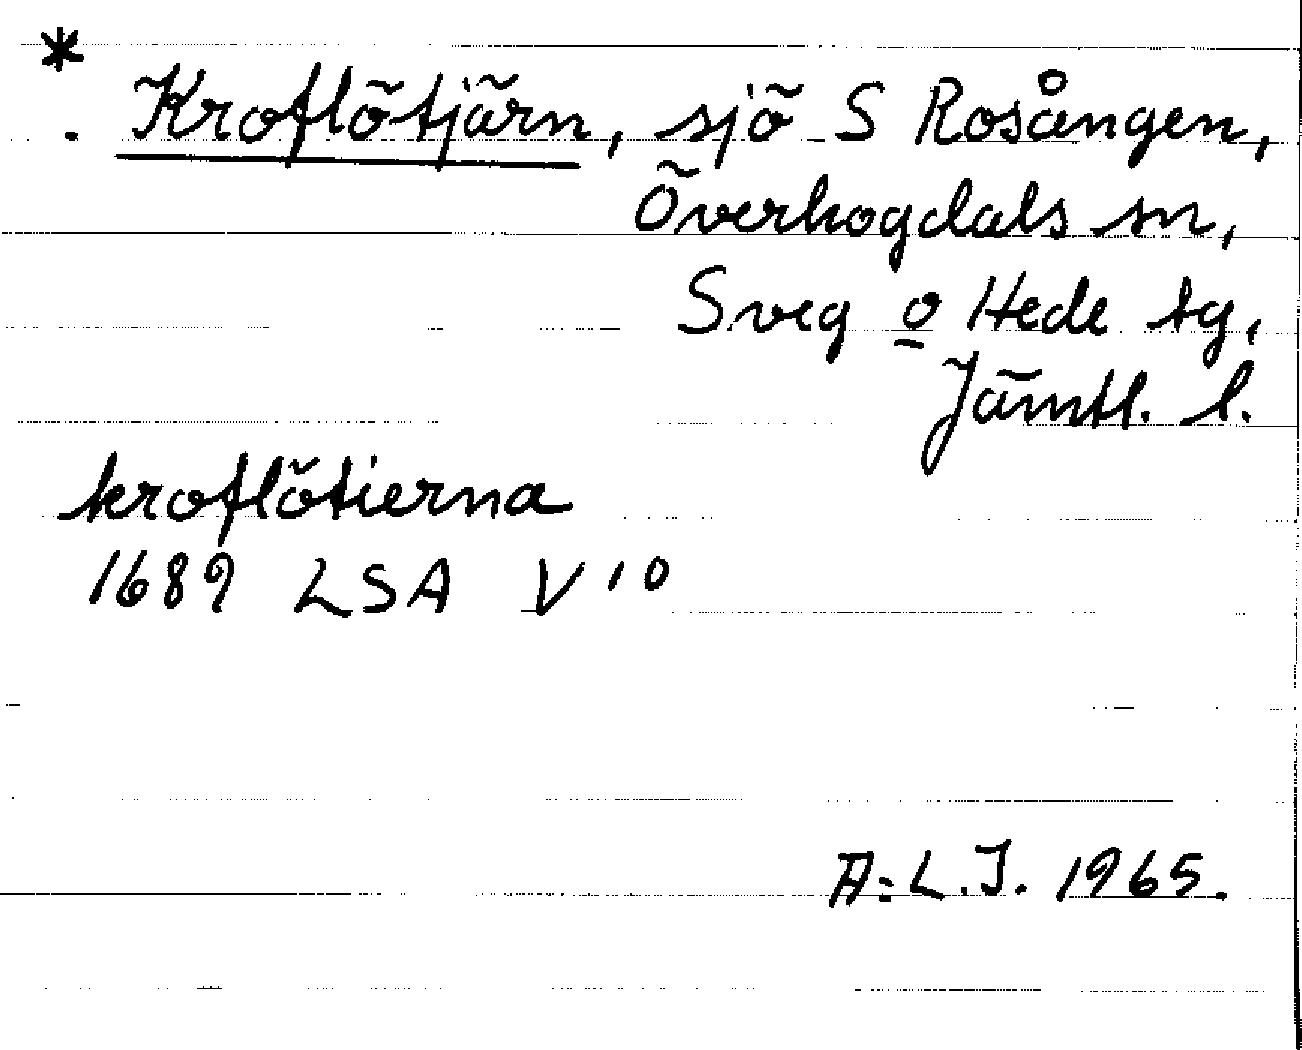 *
. Kroflötjärn, sjö S Rosången,
Överhogdals sn,
Sveg o Hede tg,
Jämtl. l.
kroflötierna
1689 LSA V 10
A.L.J. 1965.